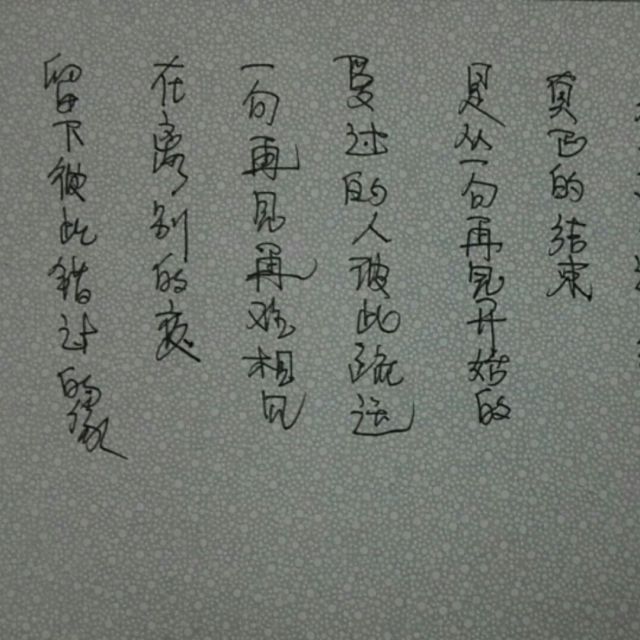 真正的结束
是从一句再见开始的
爱过的人彼此疏远
一句再见再难相见
在离别的夜
留下彼此错过的缘